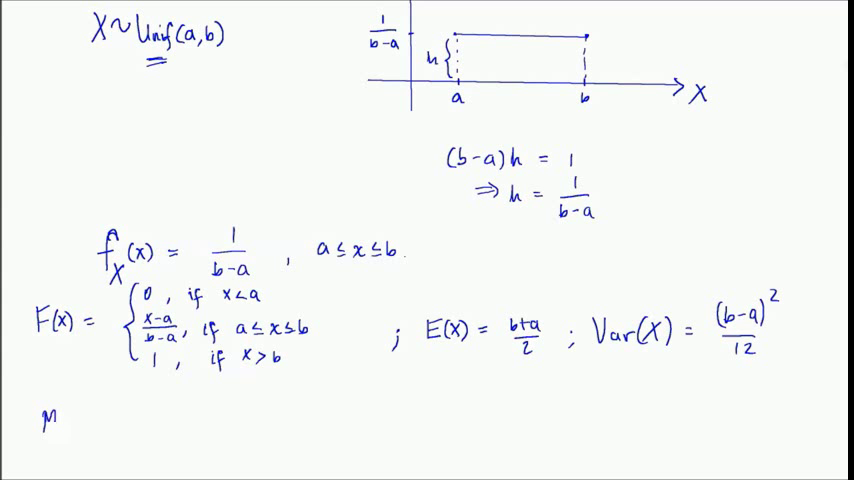 X ~ Unif(a,b)
1/(b-a)
h
a b X
(b-a)h = 1
⇒ h = 1/(b-a)
f_X(x) = 1/(b-a) , a ≤ x ≤ b.
F(x) = { 0 , if x < a
(x-a)/(b-a) , if a ≤ x ≤ b ; E(X) = (b+a)/2 ; Var(X) = (b-a)²/12
1 , if x > b
M